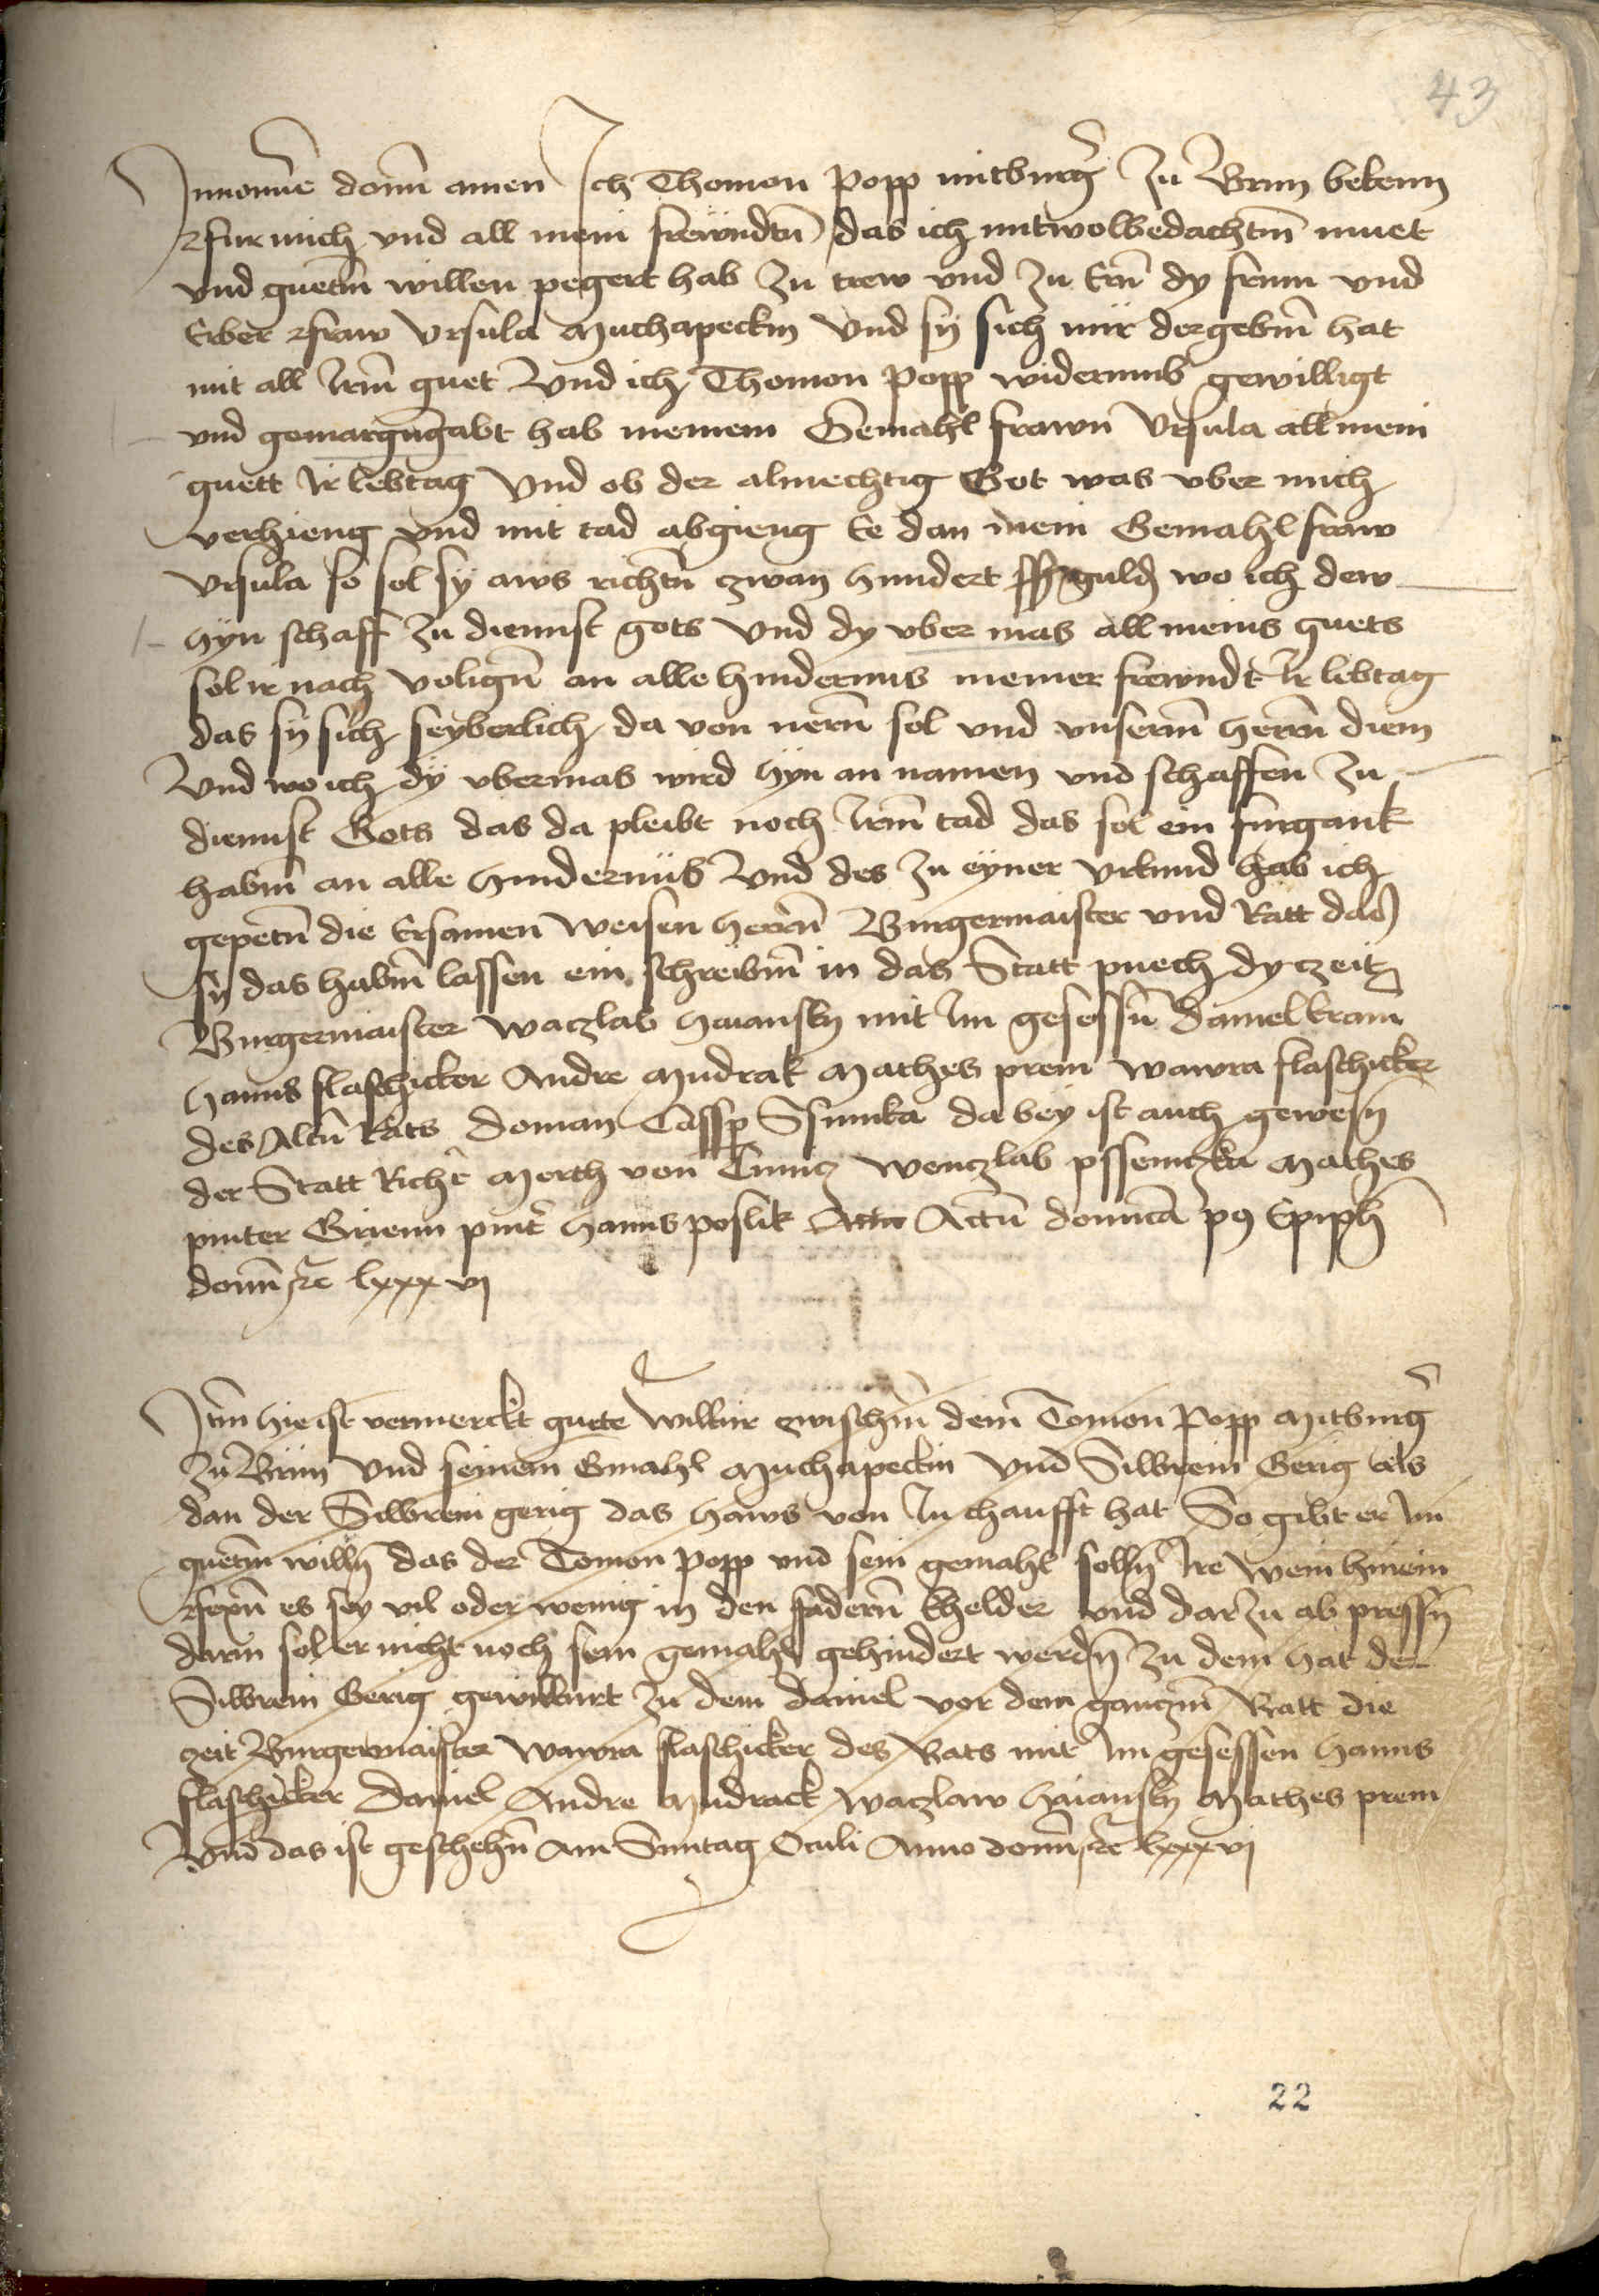 43
Innomīe domī amen Ich Thomon Popp mitburg̉ zu Brun bekenn
fur mich vnd all mein frewndtn̄ das ich mitwolbedachtm̄ muet
vnd guetm̄ willen pegert hab zu trew vnd zu Ern̄ dy frum vnd
Erber fraw Vrsula Muchapeckin Vnd sy sich mir dergebm̄ hat
mit all Irm̄ guet Vnd ich Thomon Popp widerumb gewilligt
vnd gemargngabt hab meinem Gemahl frawn Vrsula all mein
guett Ir lebtag Vnd ob der almechtig Got was vber mich
verhieng vnd mit tad abgieng Ee dan mein Gemahl fraw
Vrsula so sol sy aws richtn̄ czwan hundert guld wo ich dew
hyn schaff zu diennst gots Vnd dy vber mas all meins guets
sol ir nach volign̄ an alle hindernus meiner frewndt Ir lebtag
das sy sich seyberlich da von nern̄ sol vnd vnserm̄ herrn̄ dien
Vnd wo ich dy vbermas wird hyn an namen vnd schaffen zu
diennst Gots das da pleibt noch Irm̄ tad das sol ein furgank
habm̄ an alle hindernüs Vnd des zu eyner vrkund hab ich
gepetn̄ die Ersamen Weisen herrn̄ Burgermaister vnd Ratt das
sy das habm̄ lassen ein schreibm̄ in das Statt puech dy czeit
Burgermaister Waczlab haiansky mit Im gesessn̄ Daniel kram
hanns flaschicker Andre Mudrak Mathes prein Wawra flaschicker
des Altn̄ Rats Doman Cassp Ssimka da bey ist auch gewesn̄
der Statt Richt̉ Merth von Cunicz Wenczlab pssemczka Mathes
pinter Brienn pint̉ hanns poslik Actū domīca p9 Epiph
domī ꝛc lxxxvj
Itm̄ hie ist vermerckt guete wilkür zwischn̄ dem Tomon Popp Mitburg̉
zu Brün Vnd seinem Gmahl Muchapeckin Vnd Silbrein Gerig als
dan der Silbrein gerig das haws von In chaufft hat So gibt er Im
guetm̄ willn̄ das der Tomon Popp vnd sein gemahl solln̄ Ire Wein hinein
fexn̄ es sey vil oder wenig in den fadern̄ khelder vnd darzu ab pressn̄
darin sol er nicht noch sein gemahl gehindert werdn̄ zu dem hat der
Silbrein Gerig gewilkurt zu dem Daniel vor dem ganczm̄ Ratt die
zeit Burgermaister Wawra flaschicker des Rats mit Im gesessen hanns
flaschicker Daniel Andre Mudrack Waczlaw haiansky Mathes prein
Vnd das ist geschehn̄ Am Suntag Oculi Anno domī ꝛc lxxxvj
22